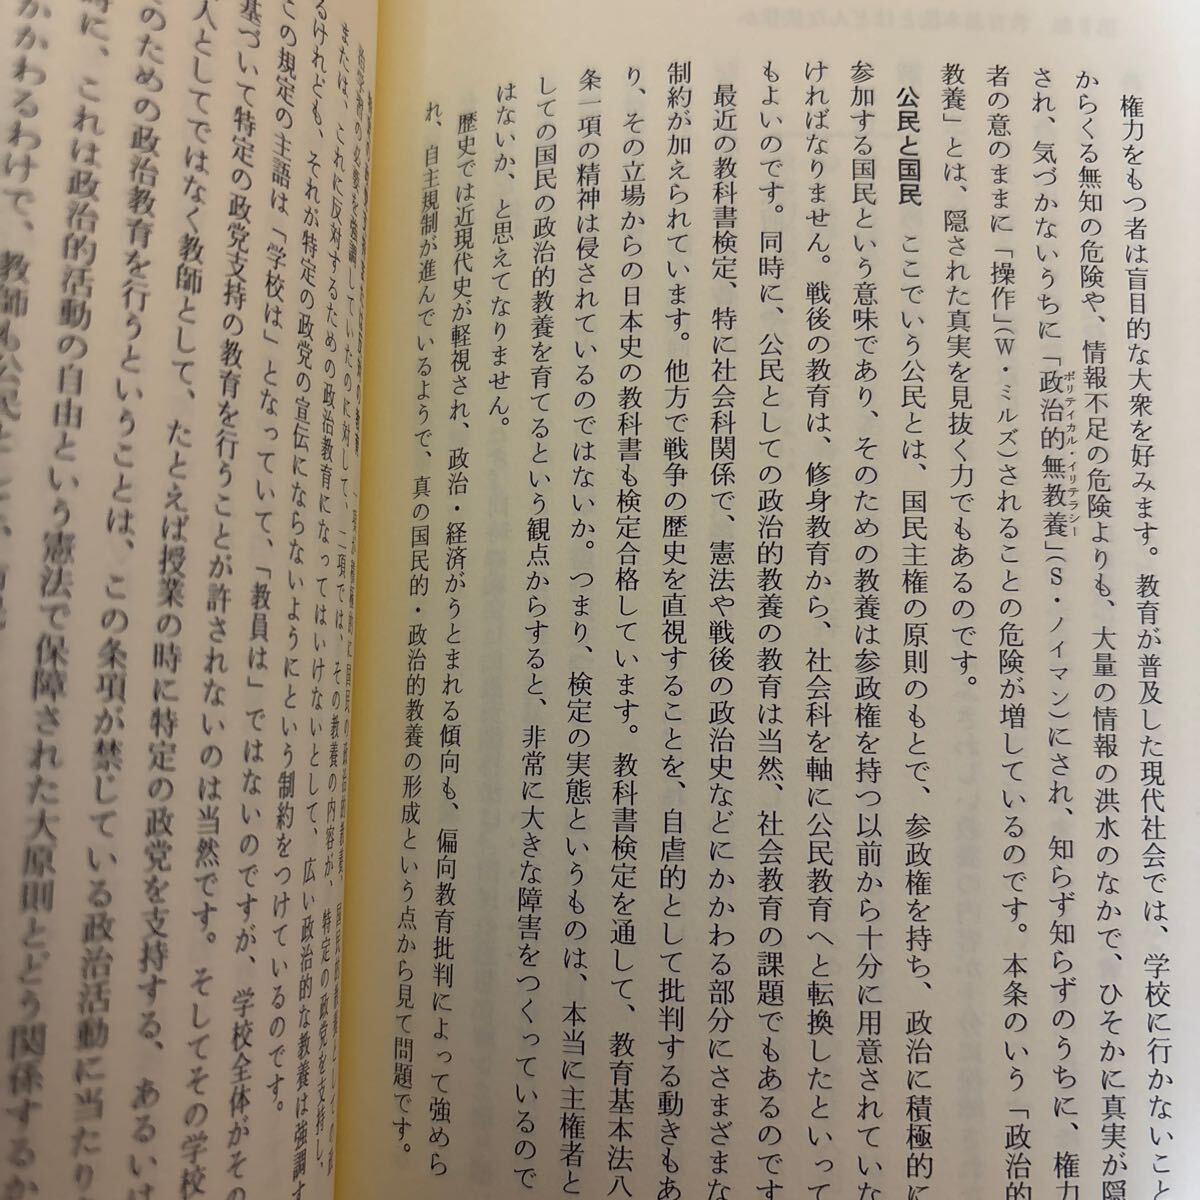 権力をもつ者は盲目的な大衆を好みます。教育が普及した現代社会では、学校に行かないこと
からくる無知の危険や、情報不足の危険よりも、大量の情報の洪水のなかで、ひそかに真実が隠
され、気づかないうちに「政治的無教養」(S・ノイマン)にされ、知らず知らずのうちに、権力
ポリティカル・イリテラシー
者の意のままに「操作」(W・ミルズ)されることの危険が増しているのです。本条のいう「政治的
教養」とは、隠された真実を見抜く力でもあるのです。
公民と国民 ここでいう公民とは、国民主権の原則のもとで、参政権を持ち、政治に積極的に
参加する国民という意味であり、そのための教養は参政権を持つ以前から十分に用意されていな
ければなりません。戦後の教育は、修身教育から、社会科を軸に公民教育へと転換したといって
もよいのです。同時に、公民としての政治的教養の教育は当然、社会教育の課題でもあるのです
最近の教科書検定、特に社会科関係で、憲法や戦後の政治史などにかかわる部分にさまざまな
制約が加えられています。他方で戦争の歴史を直視することを、自虐的として批判する動きもあ
り、その立場からの日本史の教科書も検定合格しています。教科書検定を通して、教育基本法八
条一項の精神は侵されているのではないか。つまり、検定の実態というものは、本当に主権者と
しての国民の政治的教養を育てるという観点からすると、非常に大きな障害をつくっているので
はないか、と思えてなりません。
歴史では近現代史が軽視され、政治・経済がうとまれる傾向も、偏向教育批判によって強めら
れ、自主規制が進んでいるようで、真の国民的・政治的教養の形成という点から見て問題です。
治学習の必要を強調していたのに対して、二項では、その教養の内容が、特定の政党を支持し、
または、これに反対するための政治教育になってはいけないとして、広い政治的な教養は強調す
るけれども、それが特定の政党の宣伝にならないようにという制約をつけているのです。
この規定の主語は「学校は」となっていて、「教員は」ではないのですが、学校全体がその
基づいて特定の政党支持の教育を行うことが許されないのは当然です。そしてその学校
人としてではなく教師として、たとえば授業の時に特定の政党を支持する、あるいは
そのための政治教育を行うということは、この条項が禁じている政治活動に当たり
時に、これは政治的活動の自由という憲法で保障された大原則とどう関係するか
かかわるわけで、教師も公民として、